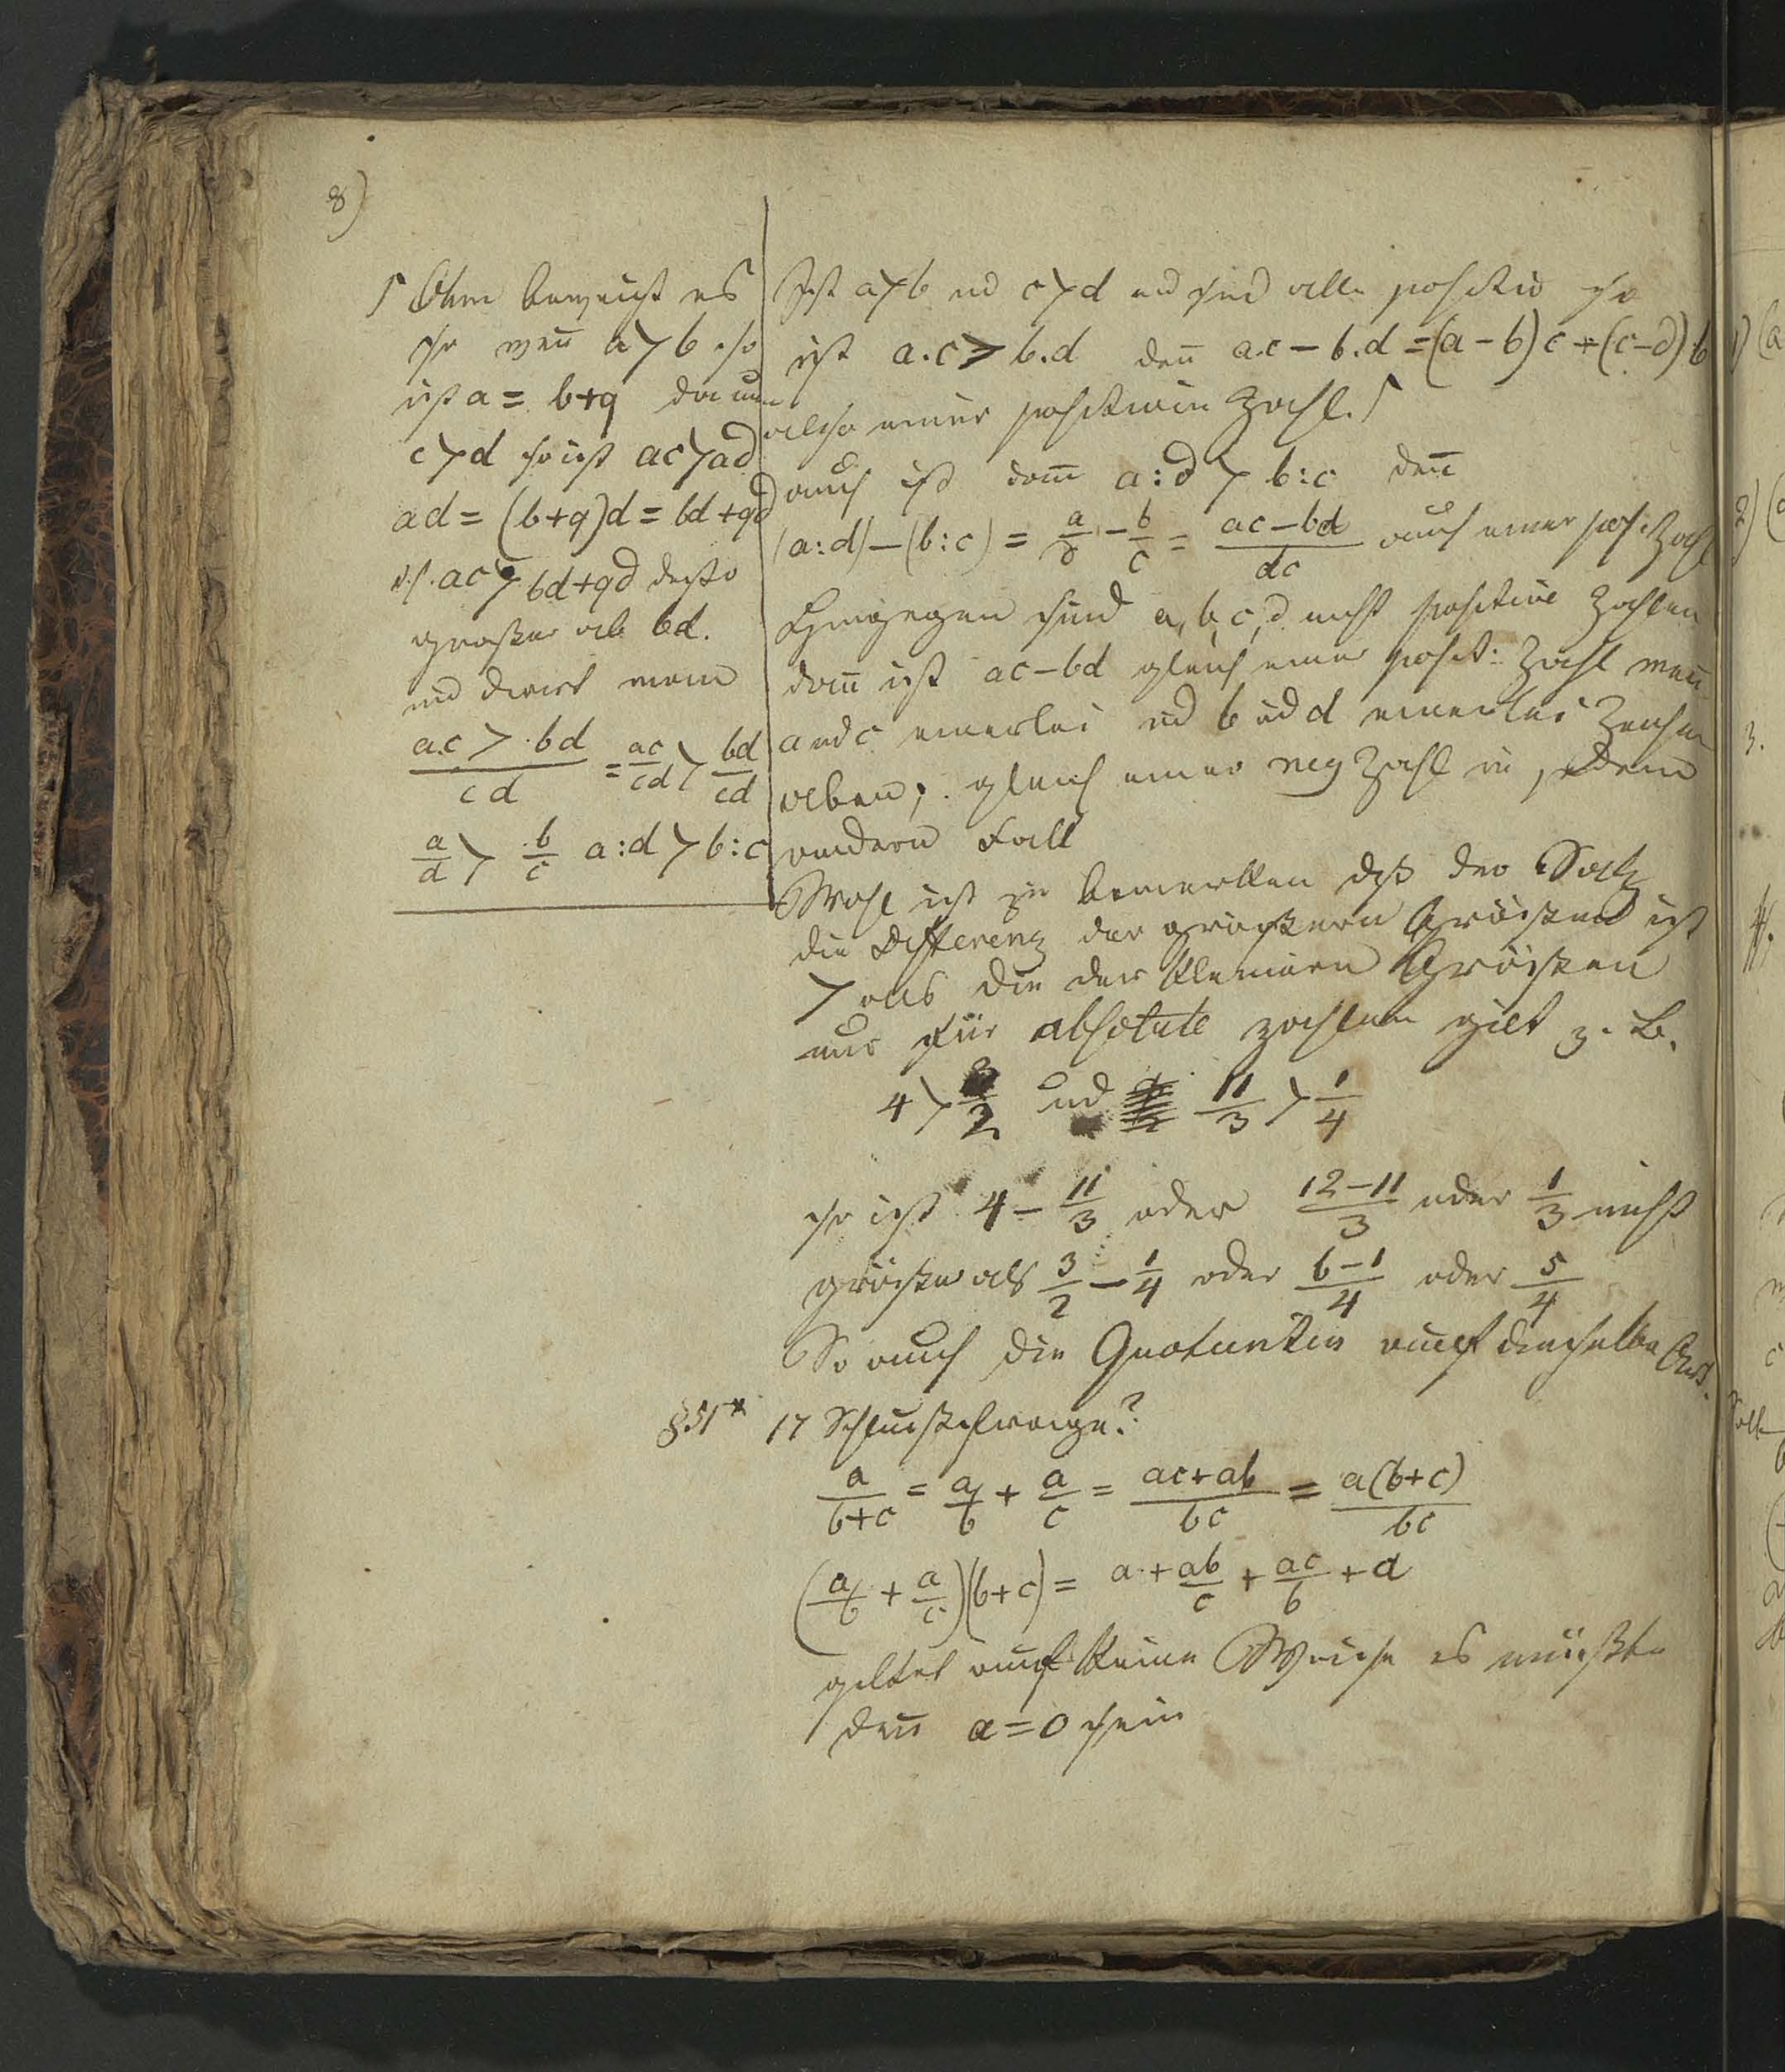 8)
⌈ Ohm beweist es
so weñ a > b so
ist a = b+q da nun
c > d so ist ac > ad
ad = (b+q)d = bd + qd
d.h. ac > bd+qd desto
großer als bd.
und divid man
a.c > bd / cd = ac/cd > bd/cd
a/d > b/c a:d > b:c
Ist a > b ud c > d ud sind alle positiv so
ist a.c > b.d deñ a.c − b.d = (a − b) c + (c − d) b
also einer positiven Zahl. ⌈
auch ist dañ a:d > b:c deñ
(a:d) − (b:c) = a/d − b/c = ac − bd / dc auch einer posit Zahl
Hingegen sind a, b, c, d nicht positive Zahlen
dañ ist ac − bd gleich einer posit: Zahl weñ
a ud c einerlei ud b ud d einerlei Zeichen
haben; gleich einer neg Zahl in jedem
andern Fall
Wohl ist zu bemerken daß der Satz
die Differenz der größern Größen ist
> als die der kleinern Größen
nur für absolute zahlen gilt z. B.
4 > 3/2 ud 11/3 > 1/4
so ist 4 − 11/3 oder 12 − 11 / 3 oder 1/3 nicht
größer als 3/2 − 1/4 oder 6 − 1 / 4 oder 5/4
So auch die Quotienten auf dieselbe Art.
§.51* 17 Schlußfrage?
a / b+c = a/b + a/c = ac+ab / bc = a(b+c) / bc
(a/b + a/c)(b+c) = a + ab/c + ac/b + a
geltet auf keine Weise es müßte
deñ a = 0 sein